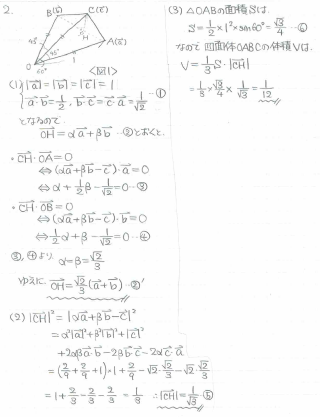 2.
B(b→) C(c→)
H A(a→)
45° 45°
60° 1
O <図1>
(1) |a→| = |b→| = |c→| = 1
a→·b→ = 1/2, b→·c→ = c→·a→ = 1/√2 …①
となるので
OH→ = αa→ + βb→ …②とおくと、
・CH→·OA→ = 0
⇔ (αa→ + βb→ − c→)·a→ = 0
⇔ α + 1/2 β − 1/√2 = 0 …③
・CH→·OB→ = 0
⇔ (αa→ + βb→ − c→)·b→ = 0
⇔ 1/2 α + β − 1/√2 = 0 …④
③, ④より α = β = √2/3
ゆえに OH→ = √2/3 (a→ + b→) …②'
(2) |CH→|² = |αa→ + βb→ − c→|²
= α²|a→|² + β²|b→|² + |c→|²
+ 2αβa→·b→ − 2βb→·c→ − 2αc→·a→
= (2/9 + 2/9 + 1)·1 + 2/9 − √2·√2/3 − √2·√2/3
= 1 + 2/3 − 2/3 − 2/3 = 1/3 ∴ |CH→| = 1/√3 ⑤
(3) △OABの面積Sは、
S = 1/2 × 1² × sin60° = √3/4 …⑥
なので 四面体OABCの体積Vは、
V = 1/3 S·|CH→|
= 1/3 × √3/4 × 1/√3 = 1/12